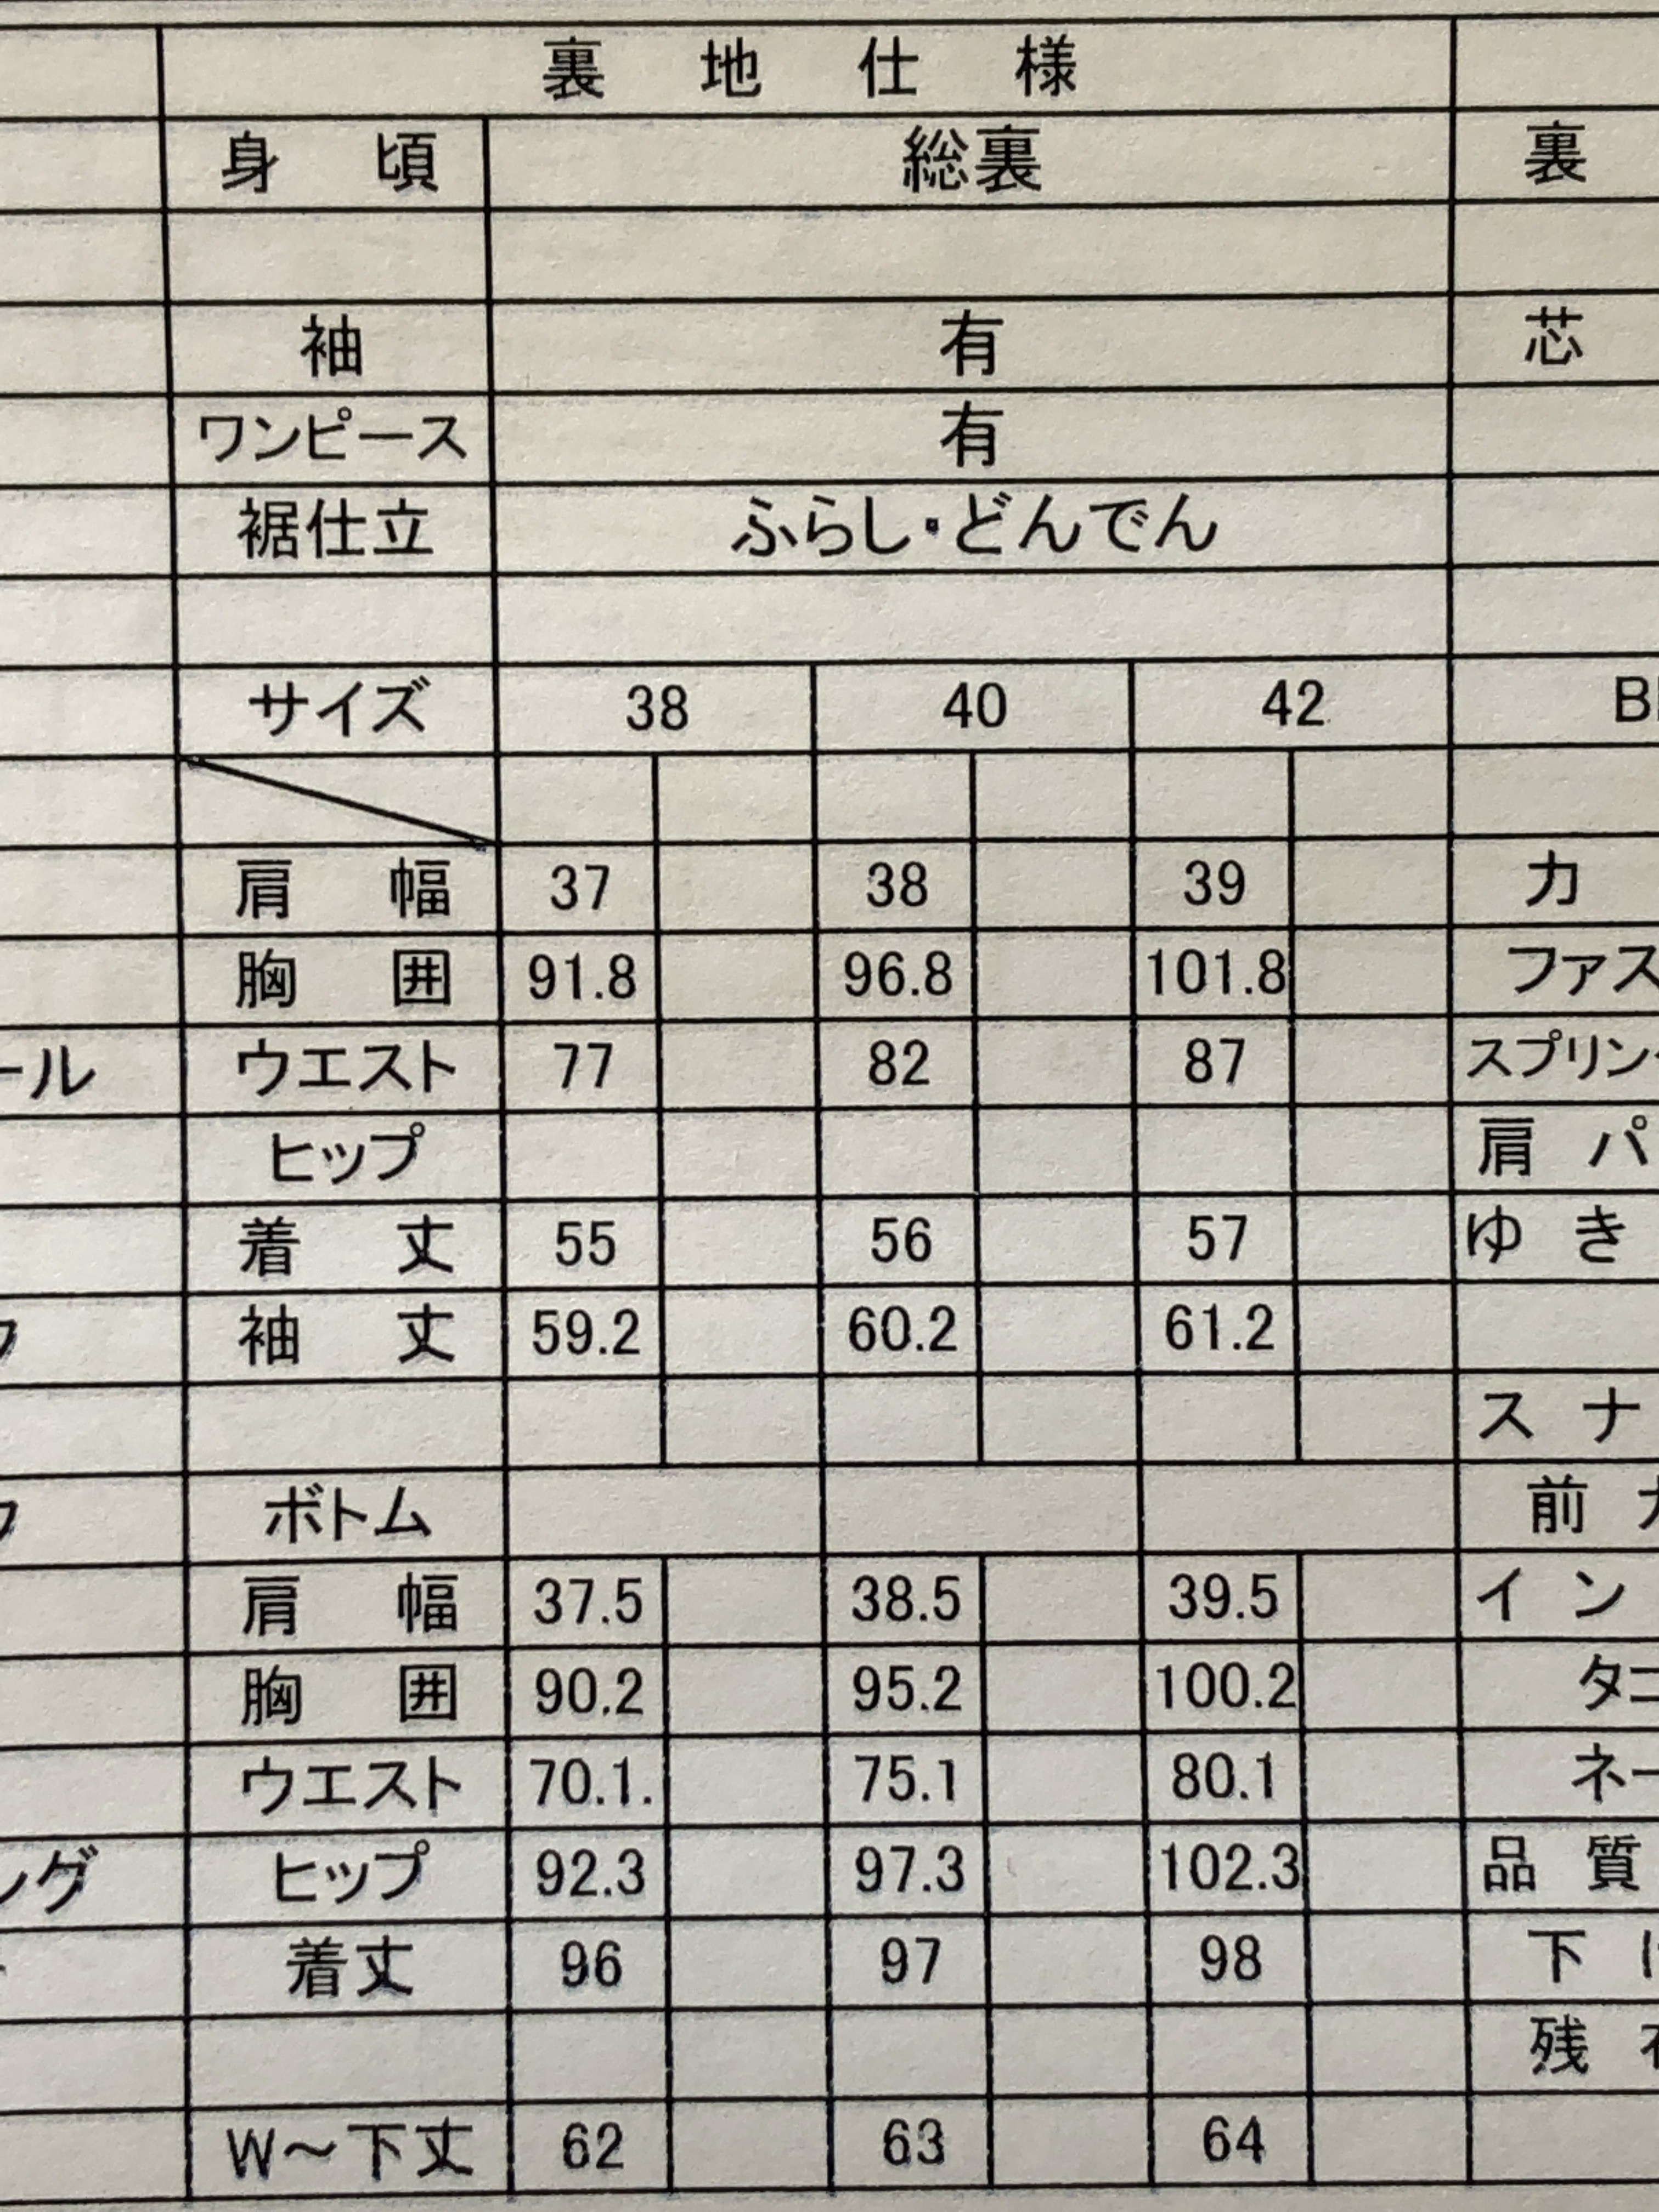 裏 地 仕 様
身 頃 総裏 裏
袖 有 芯
ワンピース 有
裾仕立 ふらし・どんでん
サイズ 38 40 42
肩 幅 37 38 39
胸 囲 91.8 96.8 101.8 ファス
ール ウエスト 77 82 87 スプリン
ヒップ 肩 パ
着 丈 55 56 57 ゆ き
袖 丈 59.2 60.2 61.2
ス ナ
ボトム 前
肩 幅 37.5 38.5 39.5 イ ン
胸 囲 90.2 95.2 100.2
ウエスト 70.1. 75.1 80.1 ネー
ング ヒップ 92.3 97.3 102.3 品 質
着丈 96 97 98 下
残
W～下丈 62 63 64